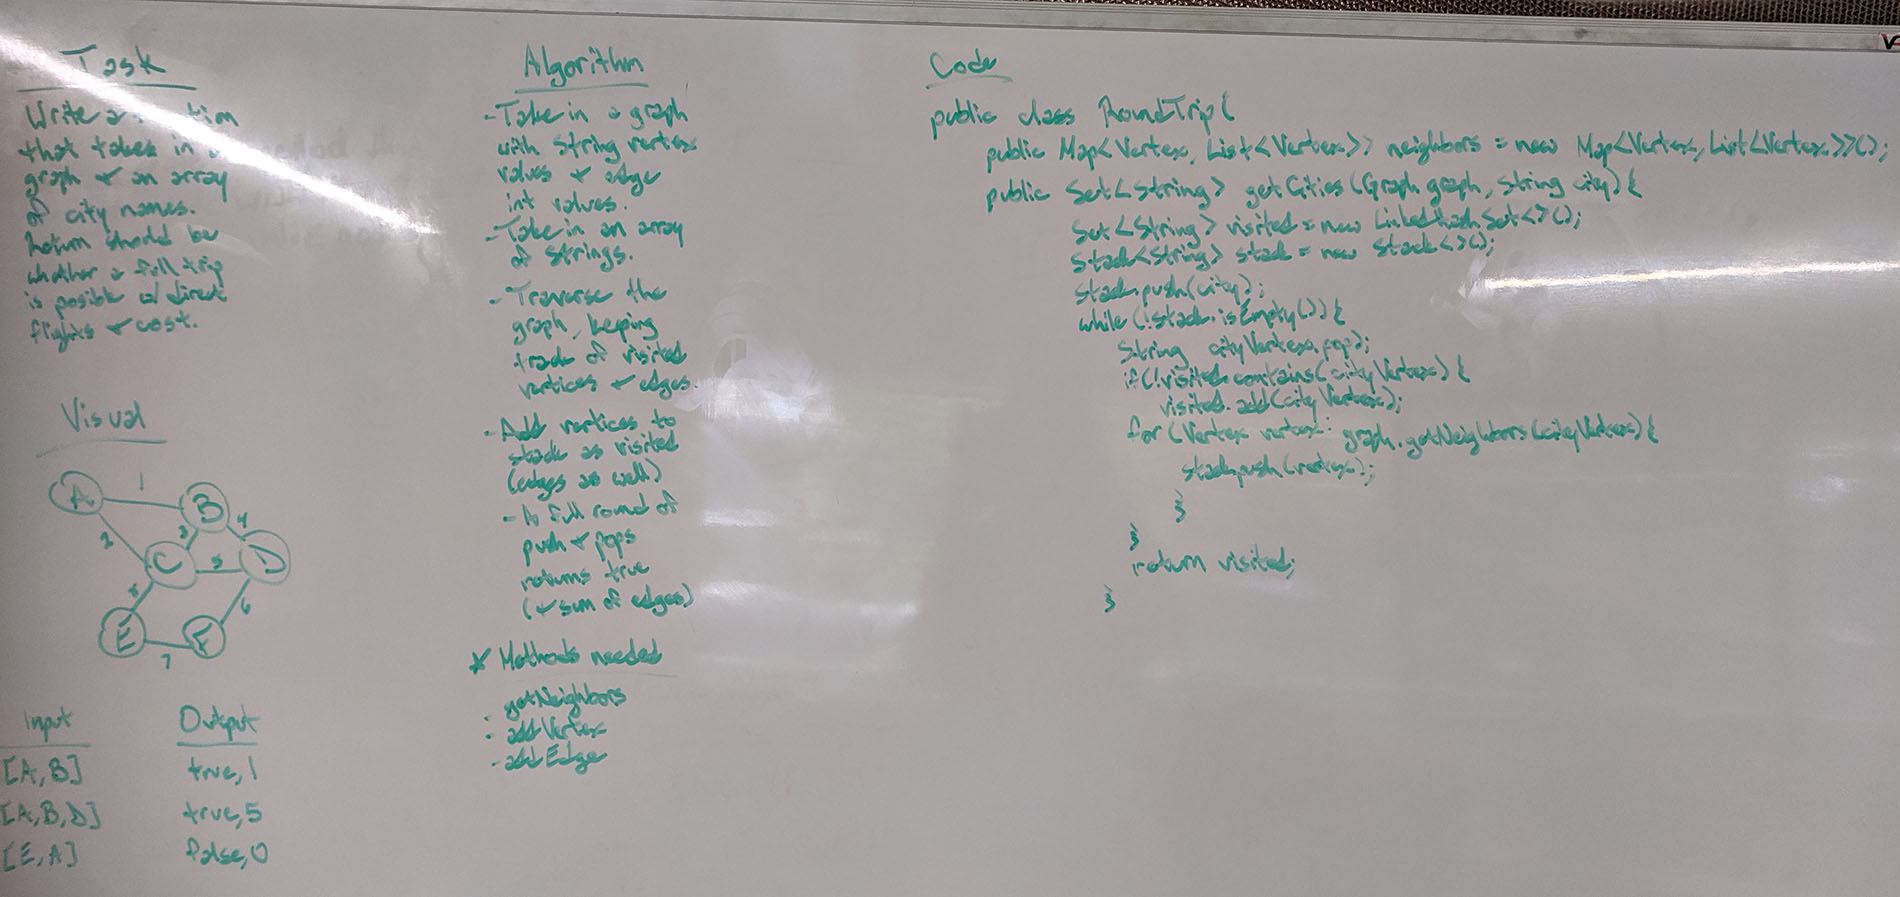 Task
Write a
that takes in a
graph + an array
of city names.
Return should be
whether a full trip
is posible w/ direct
flights + cost.
Visual
A
1
B
2
3
4
C
5
D
6
E
F
7
Input
Output
[A, B]
true, 1
[A, B, D]
true, 5
[E, A]
false, 0
Algorithm
- Take in a graph
with string vertex
values + edge
int values.
- Take in an array
of strings.
- Traverse the
graph, keeping
track of visited
vertices + edges.
- Add vertices to
stack as visited
(edges as well)
- A full round of
push + pops
returns true
(+ sum of edges)
* Methods needed
- getNeighbors
- addVertex
- addEdge
Code
public class RoundTrip {
public Map<Vertex, List<Vertex>> neighbors = new Map<Vertex, List<Vertex>>();
public Set<String> getCities (Graph graph, String city) {
Set<String> visited = new LinkedHashSet<>();
Stack<String> stack = new Stack<>();
stack.push(city);
while (!stack.isEmpty()) {
String cityVertex.pop();
if (!visited.contains(cityVertex) {
visited.add(cityVertex);
for (Vertex vertex: graph.getNeighbors(cityVertex) {
stack.push(vertex);
}
}
return visited;
}